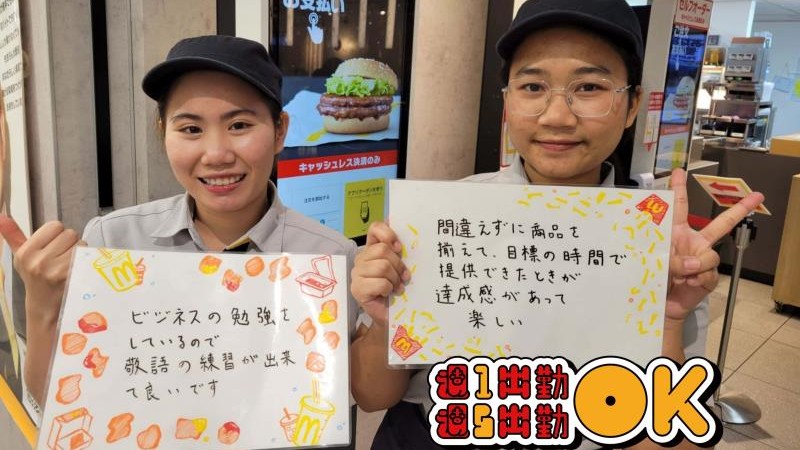 お支払い
キャッシュレス決済のみ
セルフオーダー
ビジネスの勉強を
しているので
敬語の練習が出来
て良いです
間違えずに商品を
揃えて、目標の時間で
提供できたときが
達成感があって
楽しい
週1出勤
週5出勤
OK